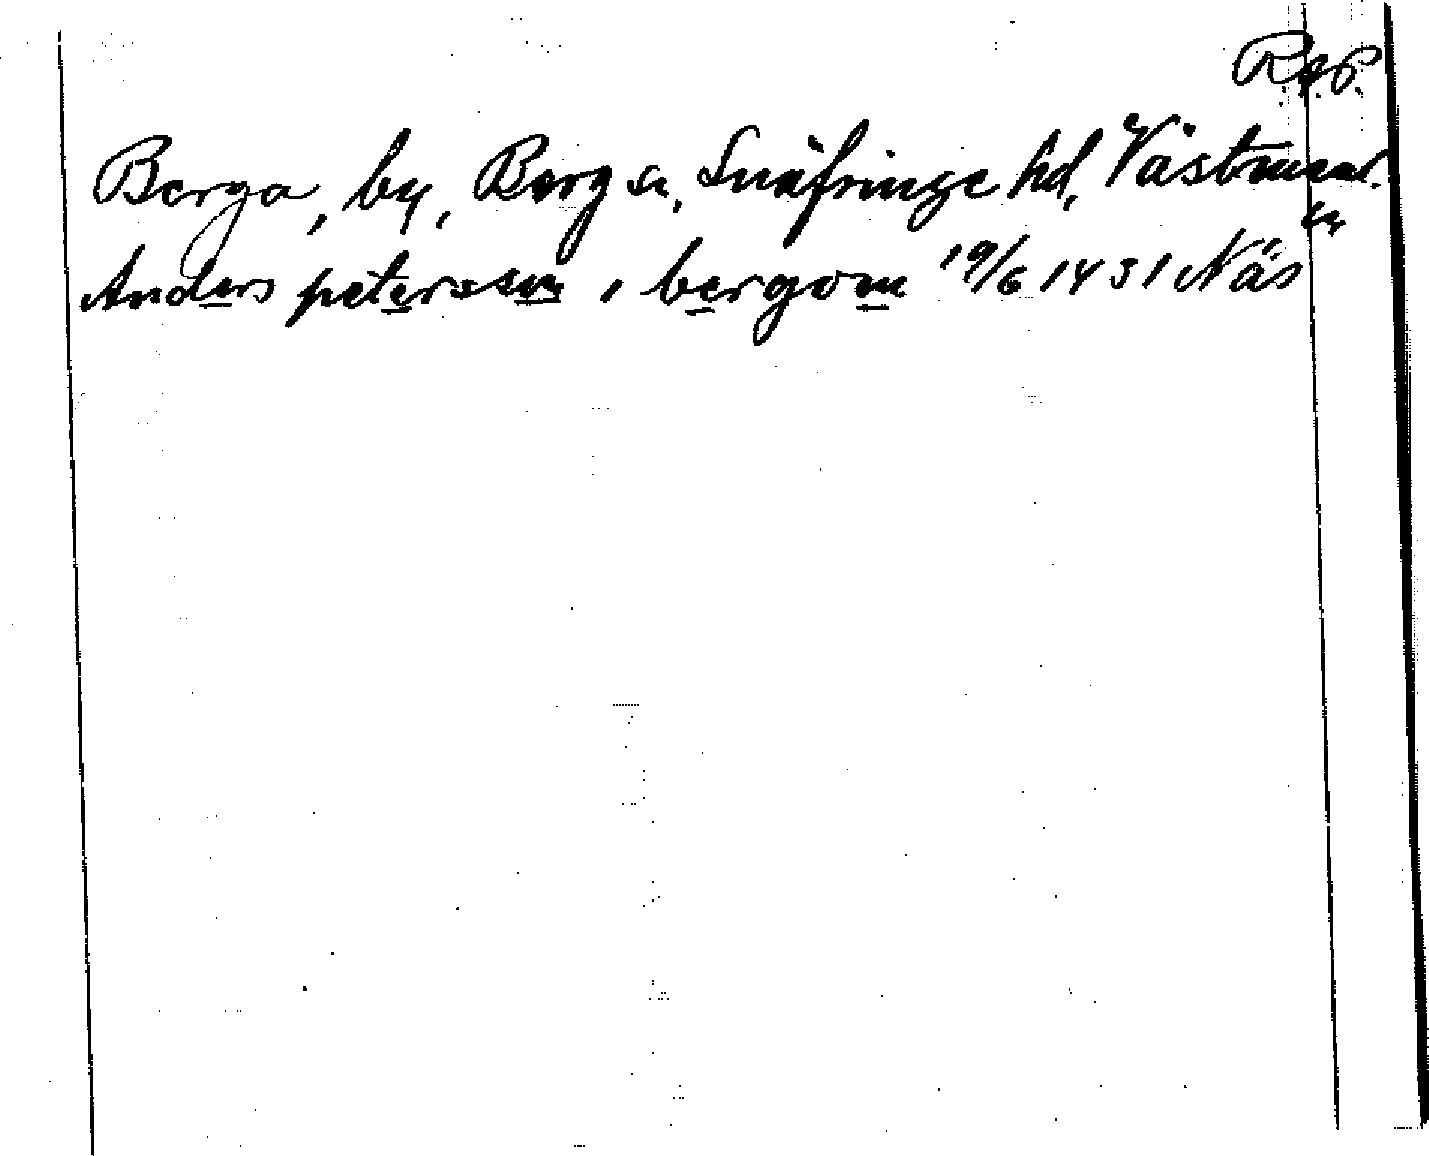 R.a.p.
Berga, by, Berg sn, Snäfringe hd, Västmanl. län
Anders petersson i bergom 19/6 1431 Näs